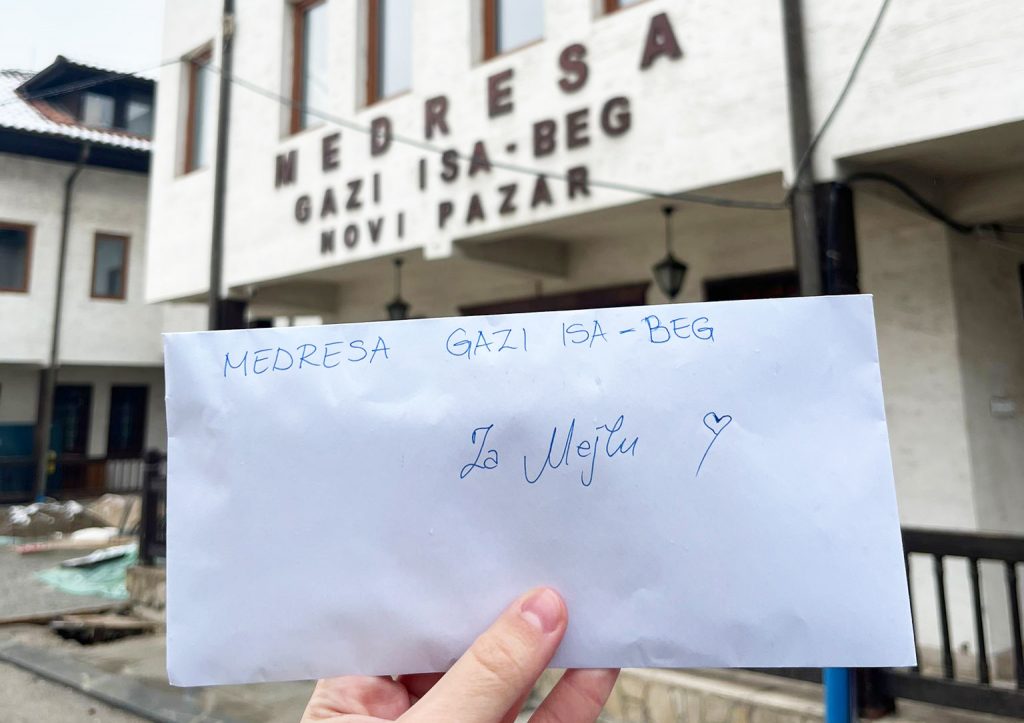 MEDRESA
GAZI ISA-BEG
NOVI PAZAR
MEDRESA GAZI ISA-BEG
Za Mejlu